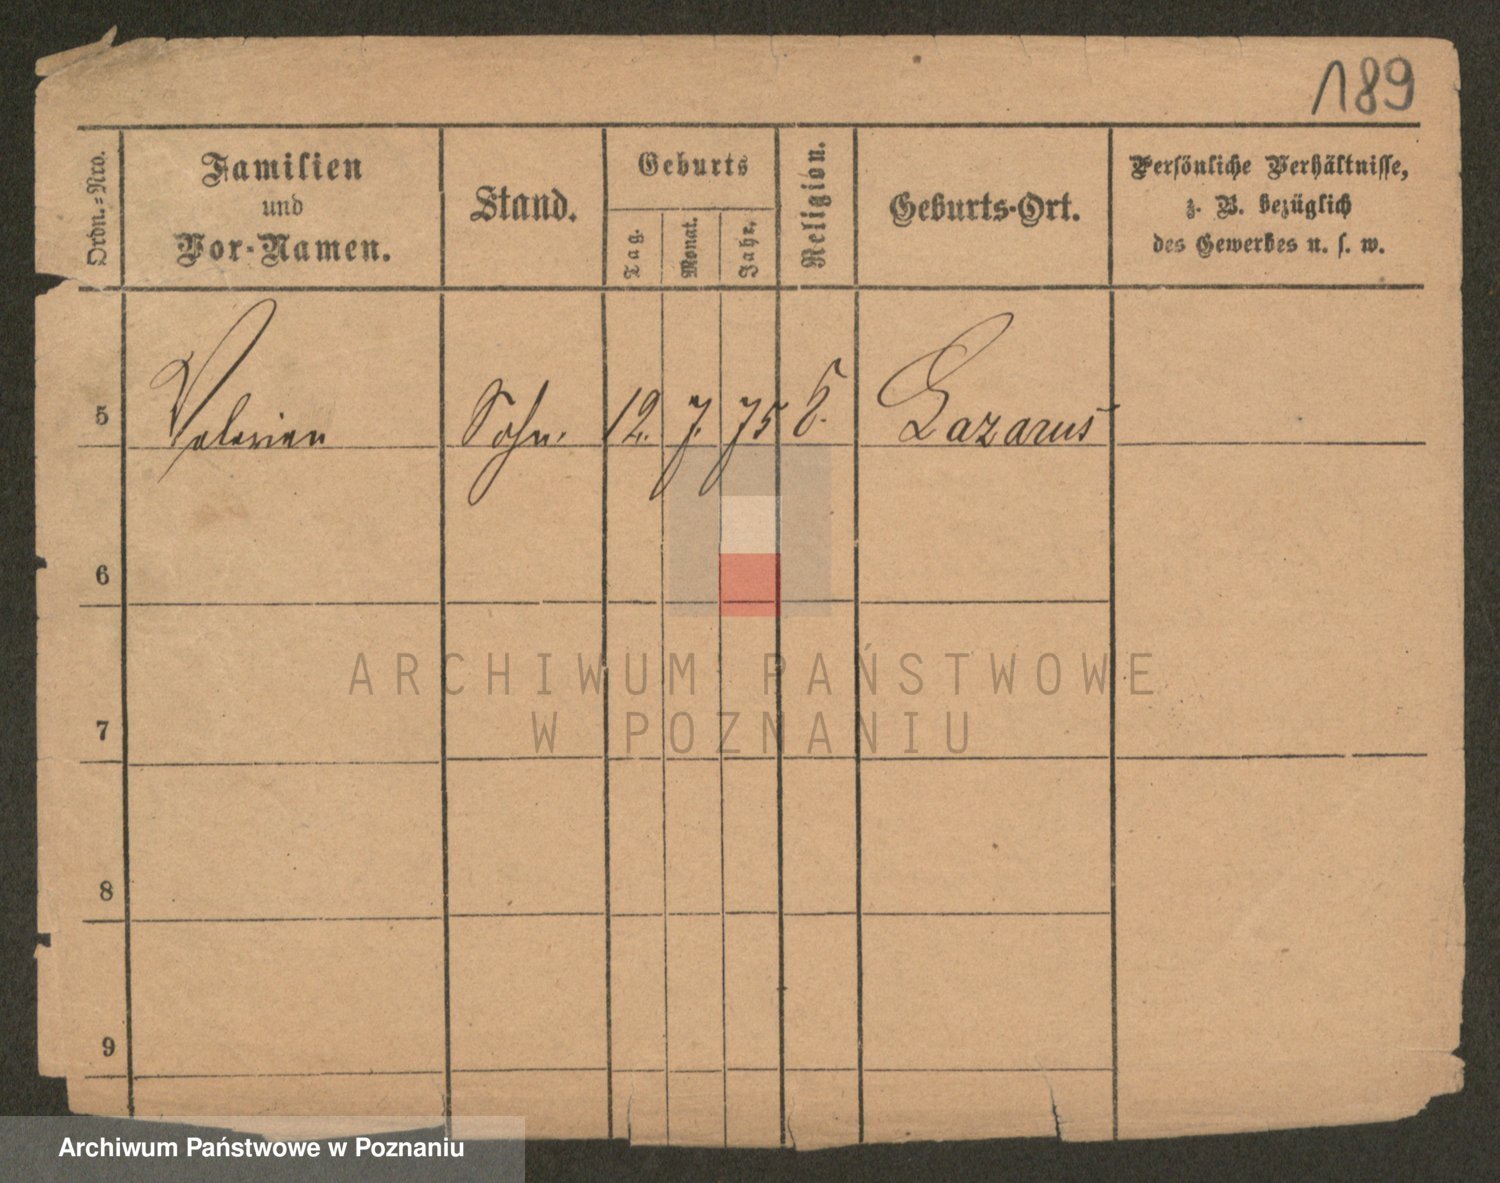 189
Ordn.=Nro.
Familien
und
Vor-Namen.
Stand.
Geburts
Tag.
Monat.
Jahr.
Religion.
Geburts-Ort.
Persönliche Verhältnisse,
z. B. bezüglich
des Gewerbes u. s. w.
5 Valerian Sohn. 12. 7. 75 Lazarus
6
7
8
9
ARCHIWUM PAŃSTWOWE
W POZNANIU
Archiwum Państwowe w Poznaniu